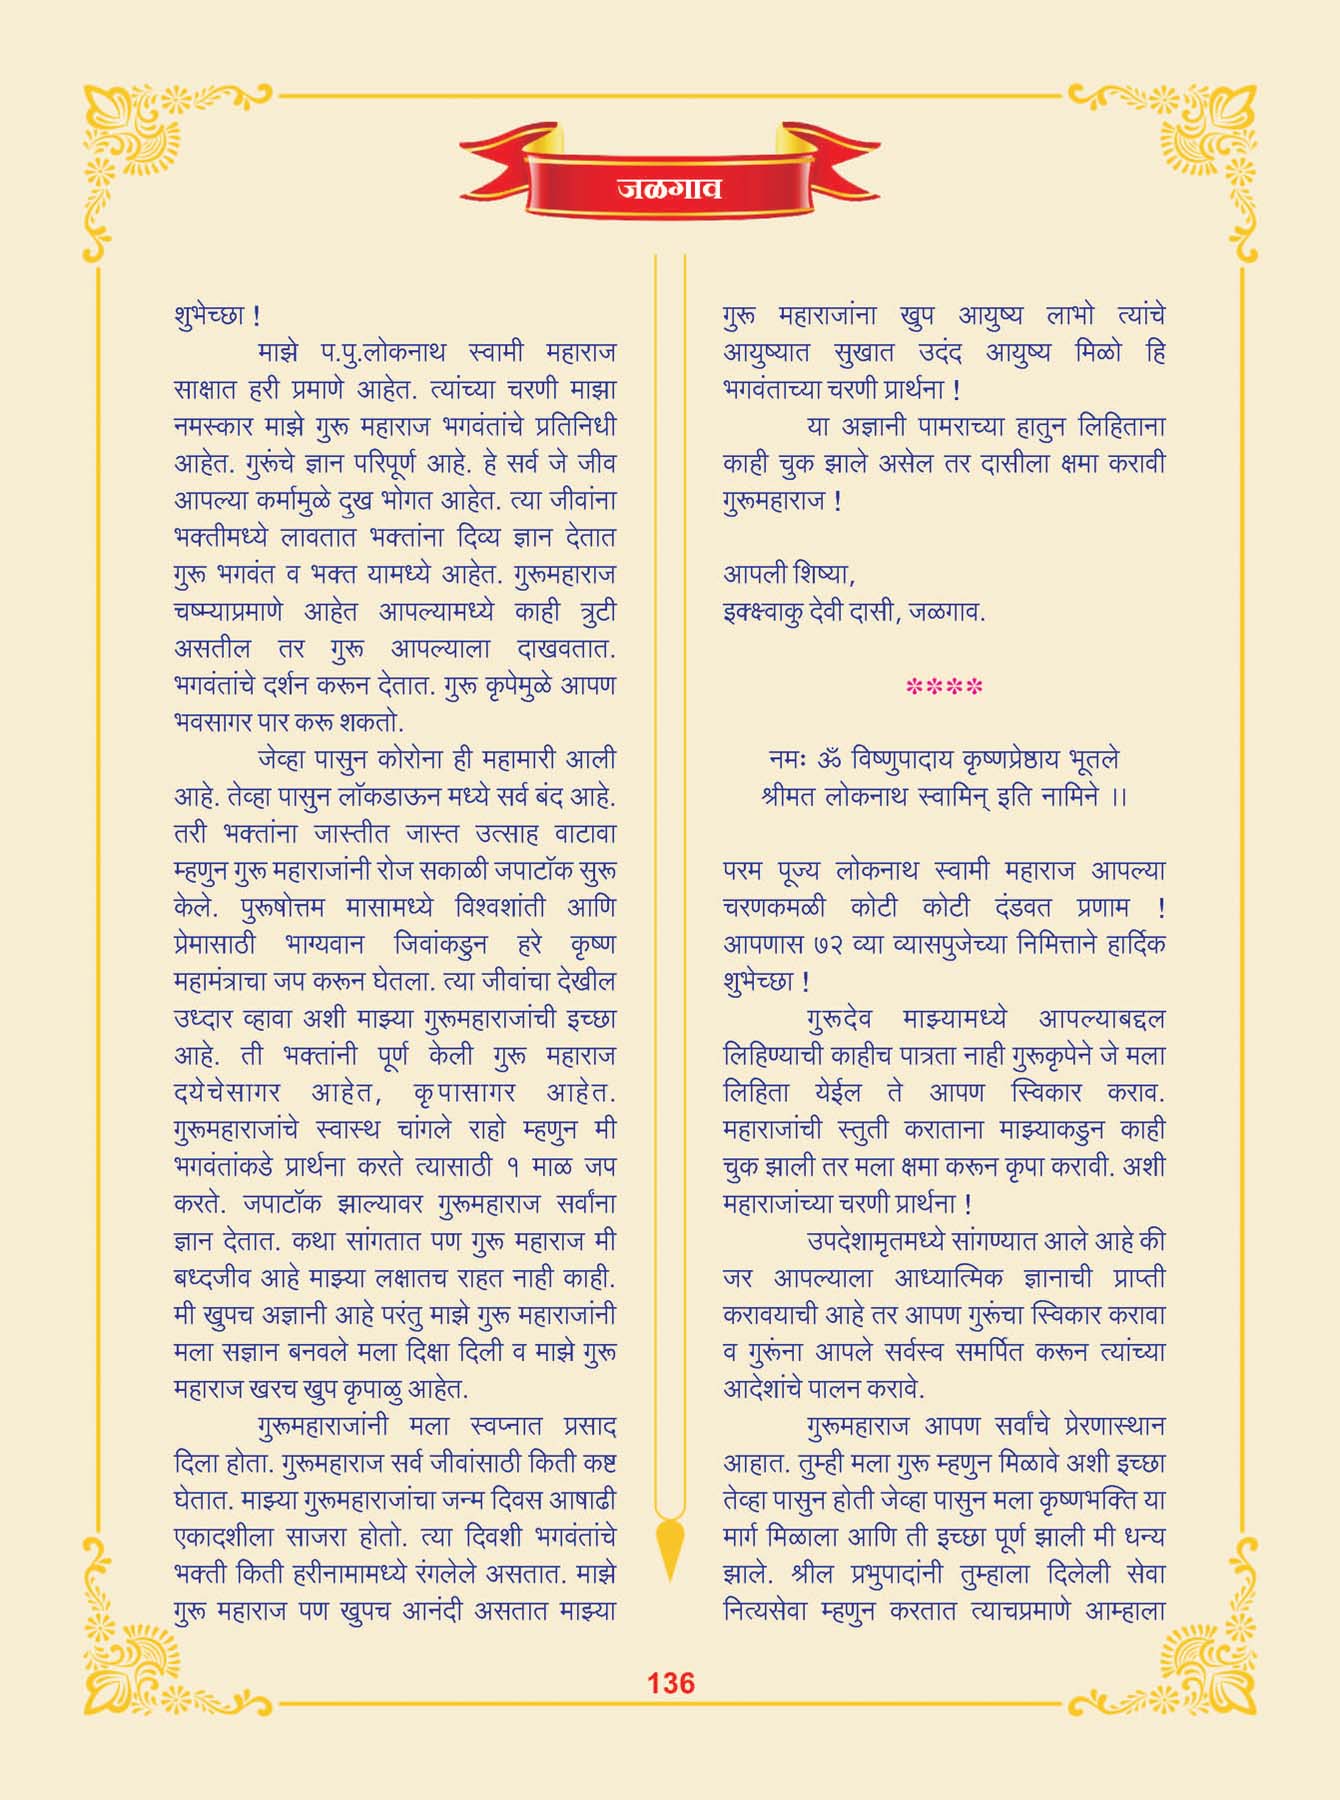 जळगाव
शुभेच्छा !
माझे प.पु.लोकनाथ स्वामी महाराज
साक्षात हरी प्रमाणे आहेत. त्यांच्या चरणी माझा
नमस्कार माझे गुरू महाराज भगवंतांचे प्रतिनिधी
आहेत. गुरूंचे ज्ञान परिपूर्ण आहे. हे सर्व जे जीव
आपल्या कर्मामुळे दुख भोगत आहेत. त्या जीवांना
भक्तीमध्ये लावतात भक्तांना दिव्य ज्ञान देतात
गुरू भगवंत व भक्त यामध्ये आहेत. गुरूमहाराज
चष्म्याप्रमाणे आहेत आपल्यामध्ये काही त्रुटी
असतील तर गुरू आपल्याला दाखवतात.
भगवंतांचे दर्शन करून देतात. गुरू कृपेमुळे आपण
भवसागर पार करू शकतो.
जेव्हा पासुन कोरोना ही महामारी आली
आहे. तेव्हा पासुन लॉकडाऊन मध्ये सर्व बंद आहे.
तरी भक्तांना जास्तीत जास्त उत्साह वाटावा
म्हणुन गुरू महाराजांनी रोज सकाळी जपाटॉक सुरू
केले. पुरूषोत्तम मासामध्ये विश्वशांती आणि
प्रेमासाठी भाग्यवान जिवांकडुन हरे कृष्ण
महामंत्राचा जप करून घेतला. त्या जीवांचा देखील
उध्दार व्हावा अशी माझ्या गुरूमहाराजांची इच्छा
आहे. ती भक्तांनी पूर्ण केली गुरू महाराज
दयेचेसागर आहेत, कृपासागर आहेत.
गुरूमहाराजांचे स्वास्थ चांगले राहो म्हणुन मी
भगवंतांकडे प्रार्थना करते त्यासाठी १ माळ जप
करते. जपाटॉक झाल्यावर गुरूमहाराज सर्वांना
ज्ञान देतात. कथा सांगतात पण गुरू महाराज मी
बध्दजीव आहे माझ्या लक्षातच राहत नाही काही.
मी खुपच अज्ञानी आहे परंतु माझे गुरू महाराजांनी
मला सज्ञान बनवले मला दिक्षा दिली व माझे गुरू
महाराज खरच खुप कृपाळु आहेत.
गुरूमहाराजांनी मला स्वप्नात प्रसाद
दिला होता. गुरूमहाराज सर्व जीवांसाठी किती कष्ट
घेतात. माझ्या गुरूमहाराजांचा जन्म दिवस आषाढी
एकादशीला साजरा होतो. त्या दिवशी भगवंतांचे
भक्ती किती हरीनामामध्ये रंगलेले असतात. माझे
गुरू महाराज पण खुपच आनंदी असतात माझ्या
गुरू महाराजांना खुप आयुष्य लाभो त्यांचे
आयुष्यात सुखात उदंद आयुष्य मिळो हि
भगवंताच्या चरणी प्रार्थना !
या अज्ञानी पामराच्या हातुन लिहिताना
काही चुक झाले असेल तर दासीला क्षमा करावी
गुरूमहाराज !
आपली शिष्या,
इक्क्ष्वाकु देवी दासी, जळगाव.
****
नमः ॐ विष्णुपादाय कृष्णप्रेष्ठाय भूतले
श्रीमत लोकनाथ स्वामिन् इति नामिने ।।
परम पूज्य लोकनाथ स्वामी महाराज आपल्या
चरणकमळी कोटी कोटी दंडवत प्रणाम !
आपणास ७२ व्या व्यासपुजेच्या निमित्ताने हार्दिक
शुभेच्छा !
गुरूदेव माझ्यामध्ये आपल्याबद्दल
लिहिण्याची काहीच पात्रता नाही गुरूकृपेने जे मला
लिहिता येईल ते आपण स्विकार कराव.
महाराजांची स्तुती कराताना माझ्याकडुन काही
चुक झाली तर मला क्षमा करून कृपा करावी. अशी
महाराजांच्या चरणी प्रार्थना !
उपदेशामृतमध्ये सांगण्यात आले आहे की
जर आपल्याला आध्यात्मिक ज्ञानाची प्राप्ती
करावयाची आहे तर आपण गुरूंचा स्विकार करावा
व गुरूंना आपले सर्वस्व समर्पित करून त्यांच्या
आदेशांचे पालन करावे.
गुरूमहाराज आपण सर्वांचे प्रेरणास्थान
आहात. तुम्ही मला गुरू म्हणुन मिळावे अशी इच्छा
तेव्हा पासुन होती जेव्हा पासुन मला कृष्णभक्ति या
मार्ग मिळाला आणि ती इच्छा पूर्ण झाली मी धन्य
झाले. श्रील प्रभुपादांनी तुम्हाला दिलेली सेवा
नित्यसेवा म्हणुन करतात त्याचप्रमाणे आम्हाला
136